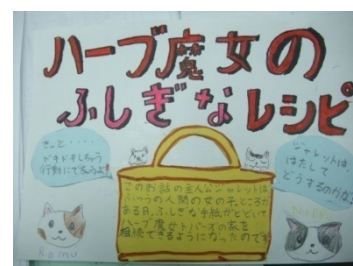 ハーブ魔女の
ふしぎなレシピ
きっと・・・・・
ドキドキしちゃう
行動にでちゃうよ!
ジャレットは
はたして
どうするのかな
このお話の主人公ジャレットは
ふつうの人間の女の子。ところ
がある日、ふしぎな手紙がとどいて
ハーブ魔女トパーズの家を
相続できるようになったのです